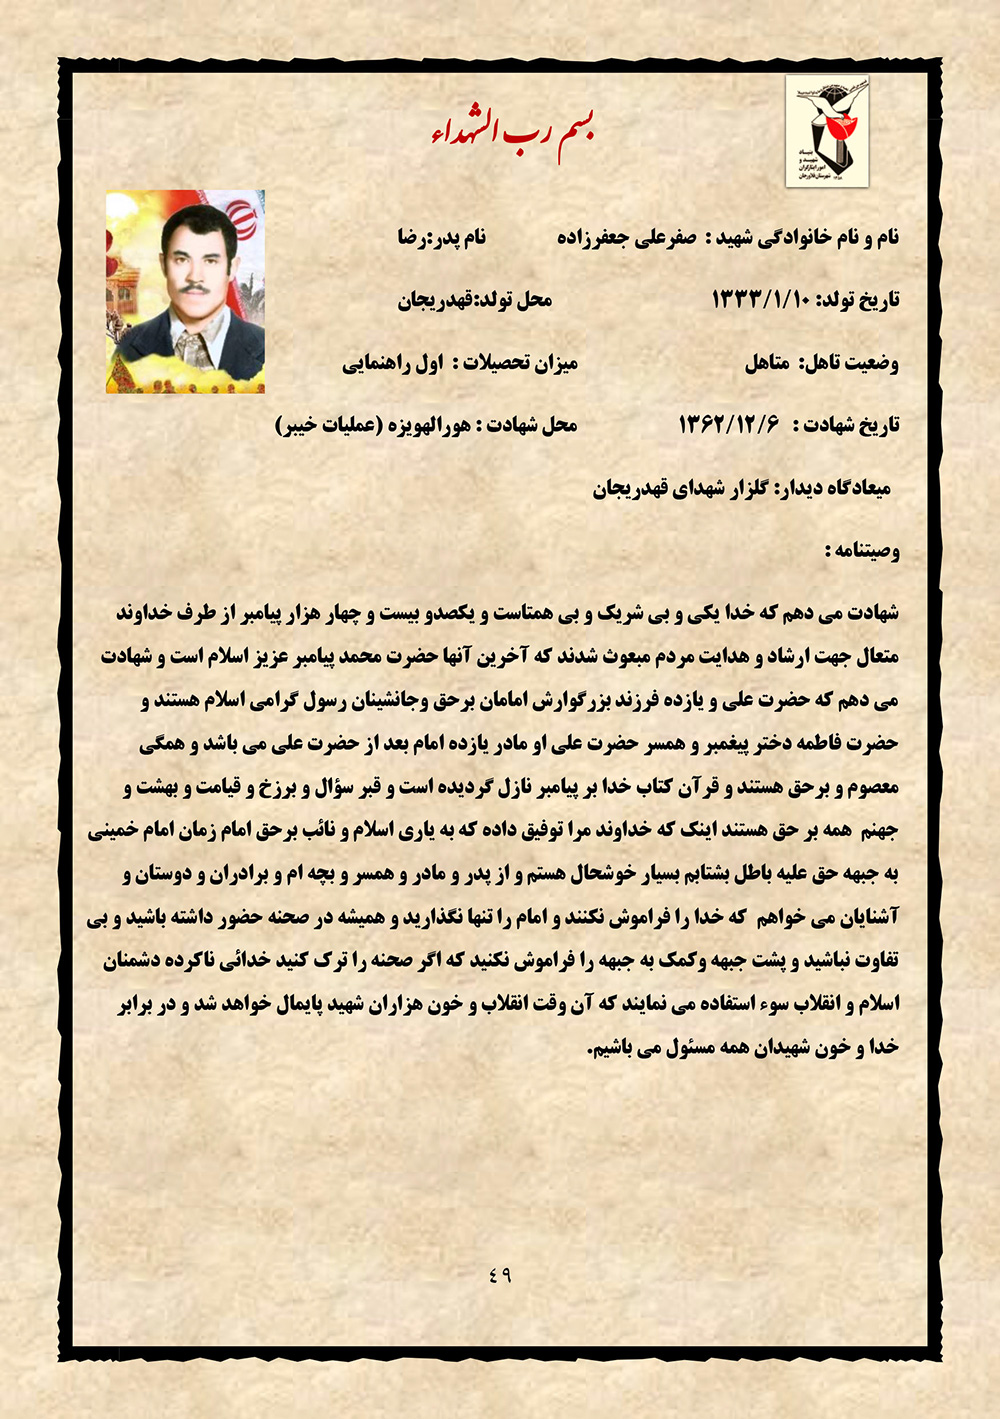 بسم رب الشهداء
بنیاد
شهید و
امور ایثارگران
شهرستان فلاورجان
نام و نام خانوادگی شهید : صفرعلی جعفرزاده نام پدر:رضا
تاریخ تولد: ۱۳۳۳/۱/۱۰ محل تولد:قهدریجان
وضعیت تاهل: متاهل میزان تحصیلات : اول راهنمایی
تاریخ شهادت : ۱۳۶۲/۱۲/۶ محل شهادت : هورالهویزه (عملیات خیبر)
میعادگاه دیدار: گلزار شهدای قهدریجان
وصیتنامه :
شهادت می دهم که خدا یکی و بی شریک و بی همتاست و یکصدو بیست و چهار هزار پیامبر از طرف خداوند
متعال جهت ارشاد و هدایت مردم مبعوث شدند که آخرین آنها حضرت محمد پیامبر عزیز اسلام است و شهادت
می دهم که حضرت علی و یازده فرزند بزرگوارش امامان برحق وجانشینان رسول گرامی اسلام هستند و
حضرت فاطمه دختر پیغمبر و همسر حضرت علی او مادر یازده امام بعد از حضرت علی می باشد و همگی
معصوم و برحق هستند و قرآن کتاب خدا بر پیامبر نازل گردیده است و قبر سؤال و برزخ و قیامت و بهشت و
جهنم همه بر حق هستند اینک که خداوند مرا توفیق داده که به یاری اسلام و نائب برحق امام زمان امام خمینی
به جبهه حق علیه باطل بشتابم بسیار خوشحال هستم و از پدر و مادر و همسر و بچه ام و برادران و دوستان و
آشنایان می خواهم که خدا را فراموش نکنند و امام را تنها نگذارید و همیشه در صحنه حضور داشته باشید و بی
تفاوت نباشید و پشت جبهه وکمک به جبهه را فراموش نکنید که اگر صحنه را ترک کنید خدائی ناکرده دشمنان
اسلام و انقلاب سوء استفاده می نمایند که آن وقت انقلاب و خون هزاران شهید پایمال خواهد شد و در برابر
خدا و خون شهیدان همه مسئول می باشیم.
٤٩